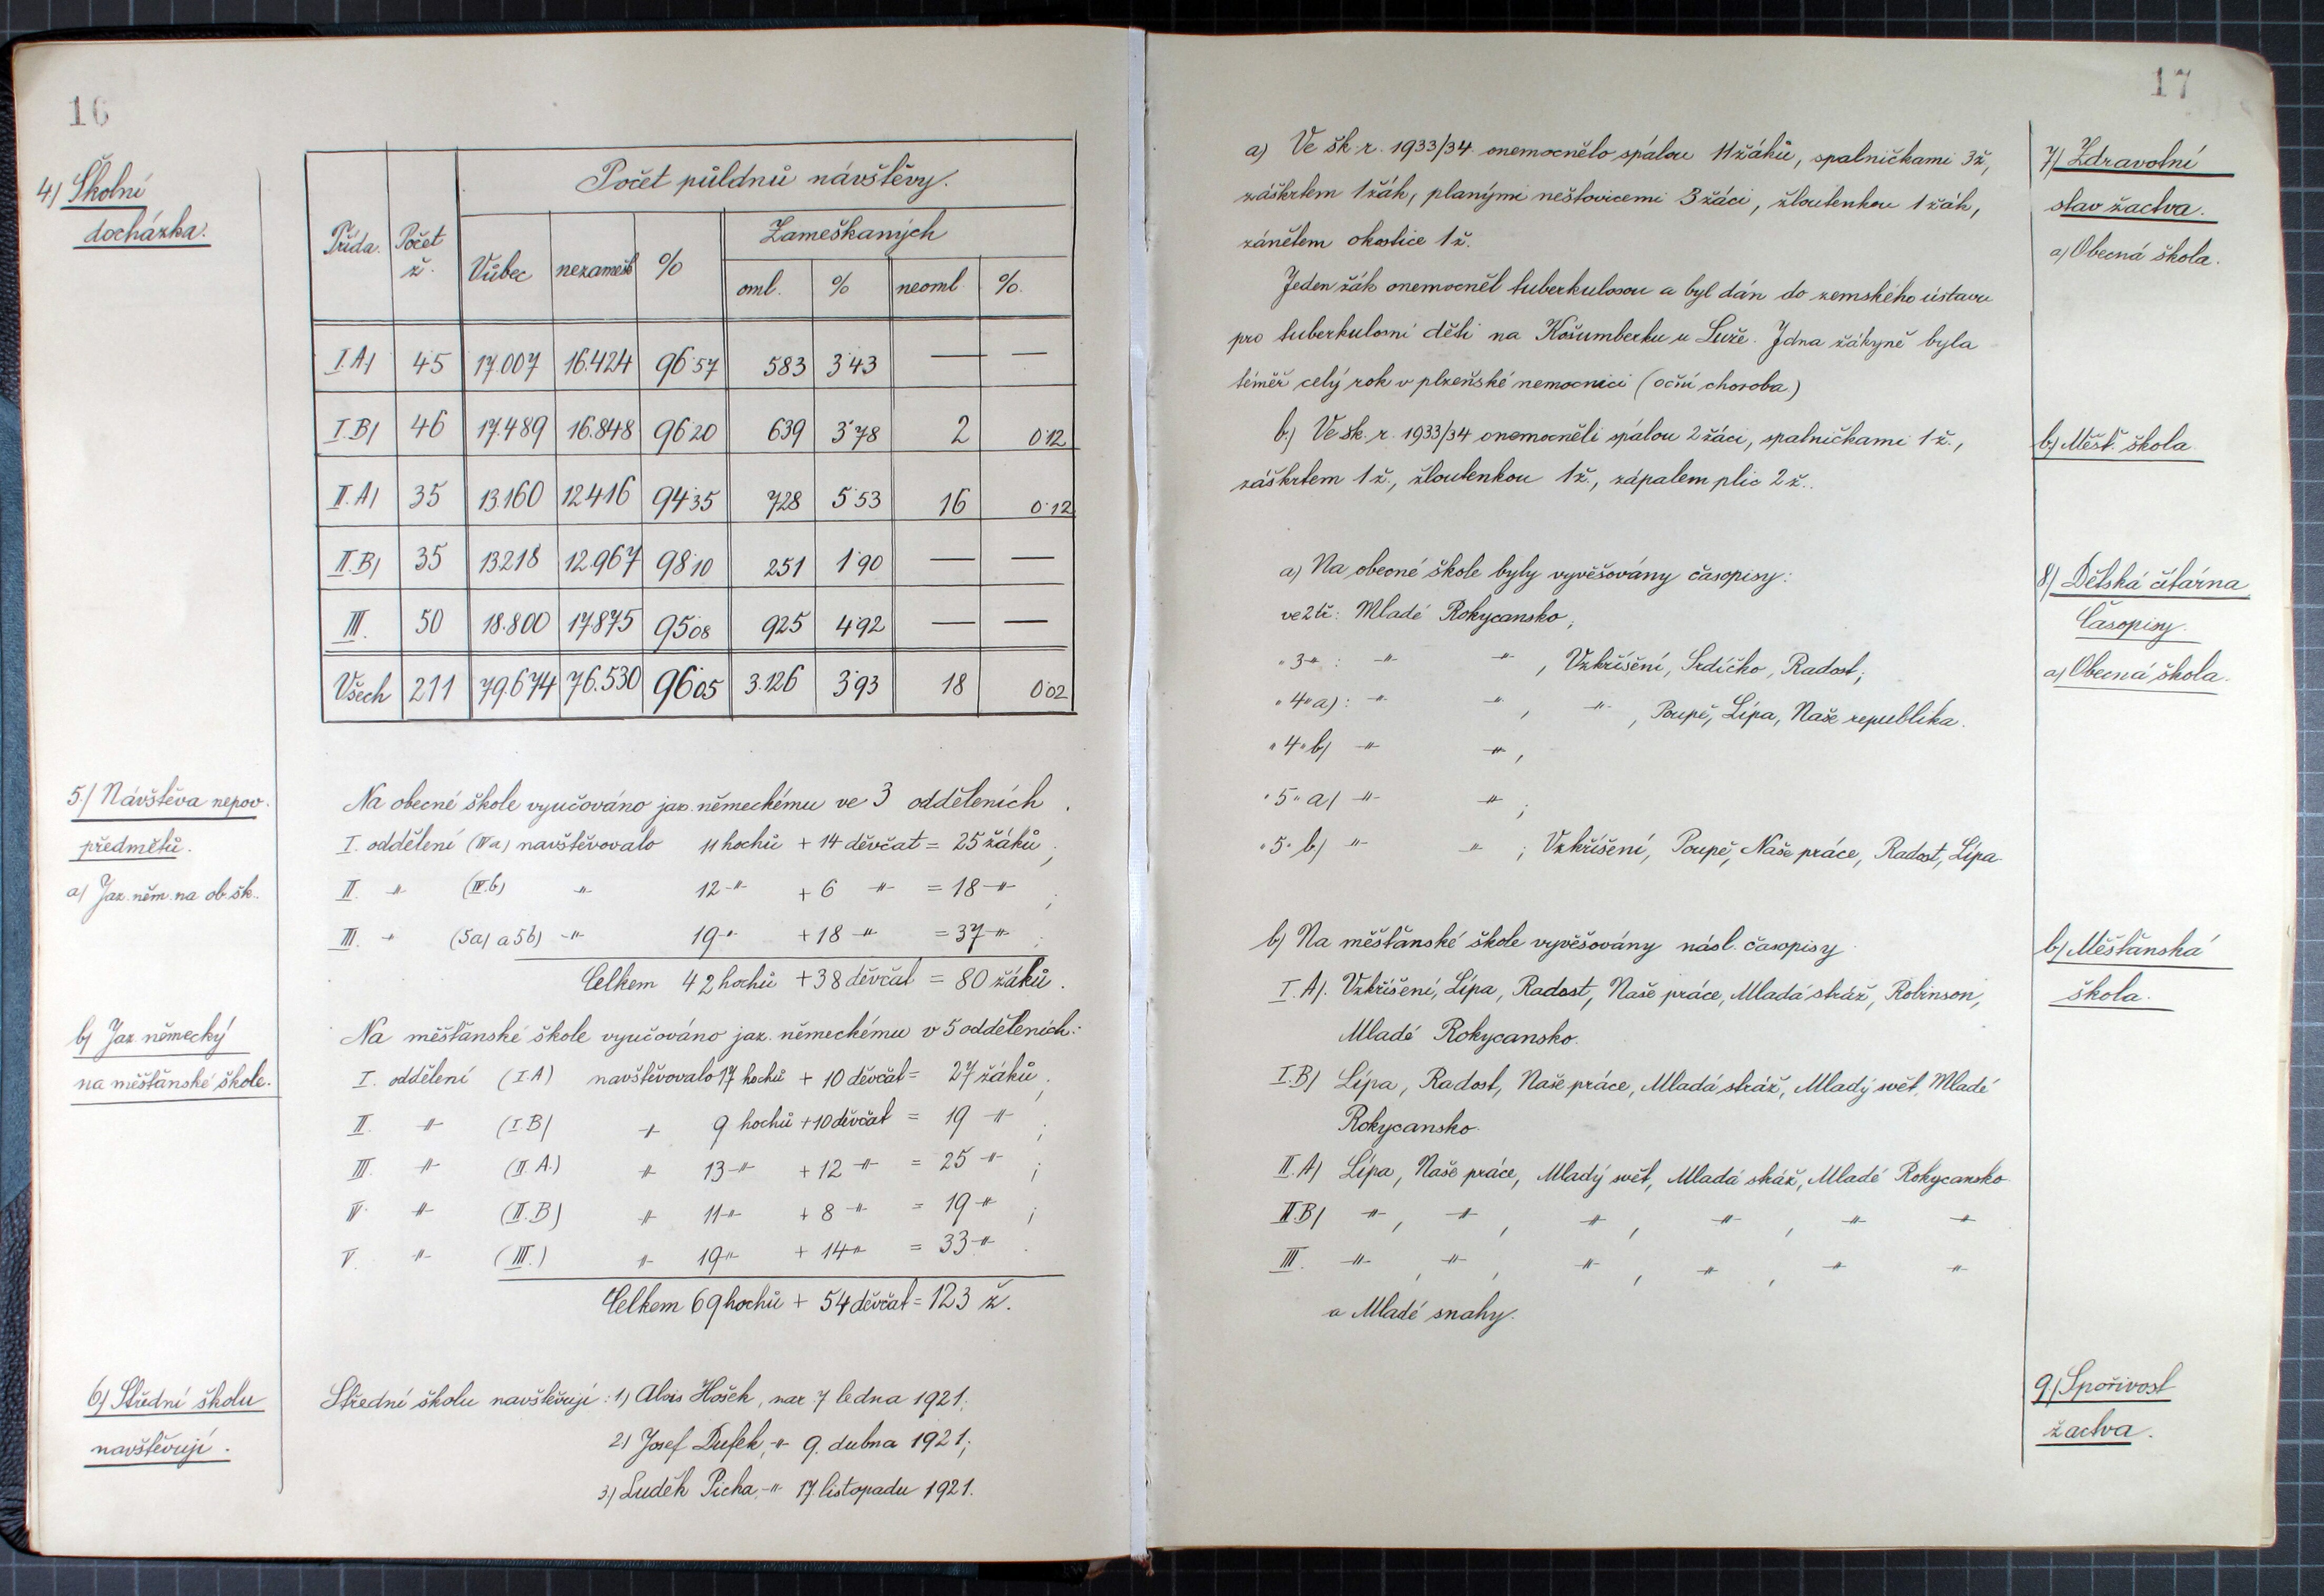 16
4) Školní
docházka.
Třída. Počet ž. Počet půldnů návštěvy.
Vůbec nezamešk % Zameškaných
oml. % neoml %.
I. A) 45 17.007 16.424 96·57 583 3·43 — —
I. B) 46 17.489 16.848 96·20 639 3·78 2 0·12
II. A) 35 13.160 12416 94·35 728 5·53 16 0·12
II. B) 35 13218 12.967 98·10 251 1·90 — —
III. 50 18.800 17.875 95·08 925 4·92 — —
Všech 211 79.674 76.530 96·05 3.126 3·93 18 0·02
5.) Návštěva nepov.
předmětů.
a) Jaz. něm. na ob. šk.
Na obecné škole vyučováno jaz. německému ve 3 odděleních.
I. oddělení (IV a) navštěvovalo 11 hochů + 14 děvčat = 25 žáků;
II. -"- (IV. b) -"- 12 -"- + 6 -"- = 18 -"- ;
III. -"- (5a) a 5b) -"- 19 -"- + 18 -"- = 37 -"- ;
Celkem 42 hochů + 38 děvčat = 80 žáků.
b) Jaz. německý
na měšťanské škole.
Na měšťanské škole vyučováno jaz. německému v 5 odděleních:
I. oddělení (I. A) navštěvovalo 17 hochů + 10 děvčat = 27 žáků;
II. -"- (I. B) -"- 9 hochů + 10 děvčat = 19 -"- ;
III. -"- (II. A.) -"- 13 -"- + 12 -"- = 25 -"- ;
IV. -"- (II. B) -"- 11 -"- + 8 -"- = 19 -"- ;
V. -"- (III.) -"- 19 -"- + 14 -"- = 33 -"- .
Celkem 69 hochů + 54 děvčat = 123 ž.
6) Střední školu
navštěvují.
Střední školu navštěvují: 1) Alois Hošek, nar. 7 ledna 1921;
2) Josef Dufek, -"- 9. dubna 1921;
3) Luděk Picha, -"- 17. listopadu 1921.
17
7) Zdravotní
stav žactva.
a) Obecná škola.
a) Ve šk. r. 1933/34 onemocnělo spálou 11 žáků, spalničkami 3 ž,
záškrtem 1 žák, planými neštovicemi 3 žáci, žloutenkou 1 žák,
zánětem okostice 1 ž.
Jeden žák onemocněl tuberkulosou a byl dán do zemského ústavu
pro tuberkulosní děti na Košumberku u Luže. Jdna žákyně byla
téměř celý rok v plzeňské nemocnici (oční choroba)
b) Měšť. škola
b.) Ve šk. r. 1933/34 onemocněli spálou 2 žáci, spalničkami 1 ž.,
záškrtem 1 ž., žloutenkou 1 ž., zápalem plic 2 ž..
8) Dětská čítárna
Časopisy.
a) Obecná škola.
a) Na obecné škole byly vyvěšovány časopisy:
ve 2 tř: Mladé Rokycansko;
" 3 -"- : -"- -"- , Vzkříšení, Srdíčko, Radost;
" 4 " a) : -"- -"- , -"- , Poupě, Lípa, Naše republika.
" 4 " b) -"- -"- ,
" 5 " a) -"- -"- ;
" 5 " b) -"- -"- ; Vzkříšení, Poupě, Naše práce, Radost, Lípa
b) Měšťanská
škola.
b) Na měšťanské škole vyvěšovány násl. časopisy
I. A). Vzkříšení, Lípa, Radost, Naše práce, Mladá stráž, Robinson,
Mladé Rokycansko.
I. B) Lípa, Radost, Naše práce, Mladá stráž, Mladý svět, Mladé
Rokycansko.
II. A) Lípa, Naše práce, Mladý svět, Mladá stráž, Mladé Rokycansko.
II B) -"- , -"- , -"- , -"- , -"- -"-
III. -"- , -"- , -"- , -"- , -"- -"-
a Mladé snahy.
9) Spořivost
žactva.